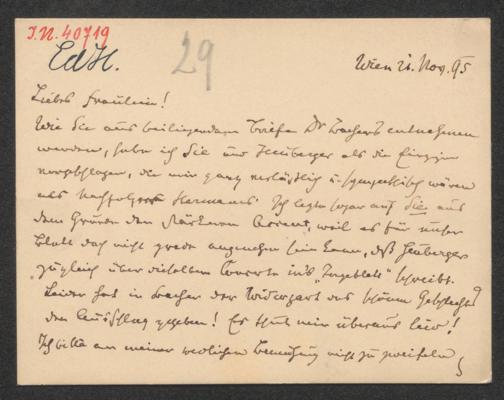 I.N. 40719
EdH.
29
Wien 21. Nov. 95
Liebes Fräulein!
Wie Sie aus beiliegendem Briefe Dr Bachers entnehmen
werden, habe ich Sie und Heuberger als die Einzigen
vorgeschlagen, die mir ganz verläßlich u. sympathisch wären
als Nachfolger Hermanns. Ich legte sogar auf Sie aus
dem Grunde den stärkeren Accent, weil es für unser
Blatt doch nicht grade angenehm sein kann, daß Heuberger
zugleich über dieselben Concerte in's "Tageblatt" schreibt.
Leider hat in Bacher der Widerpart des schönen Geschlechts
den Ausschlag gegeben! Es thut mir überaus leid!
Ich bitte an meiner redlichen Bemühung nicht zu zweifeln